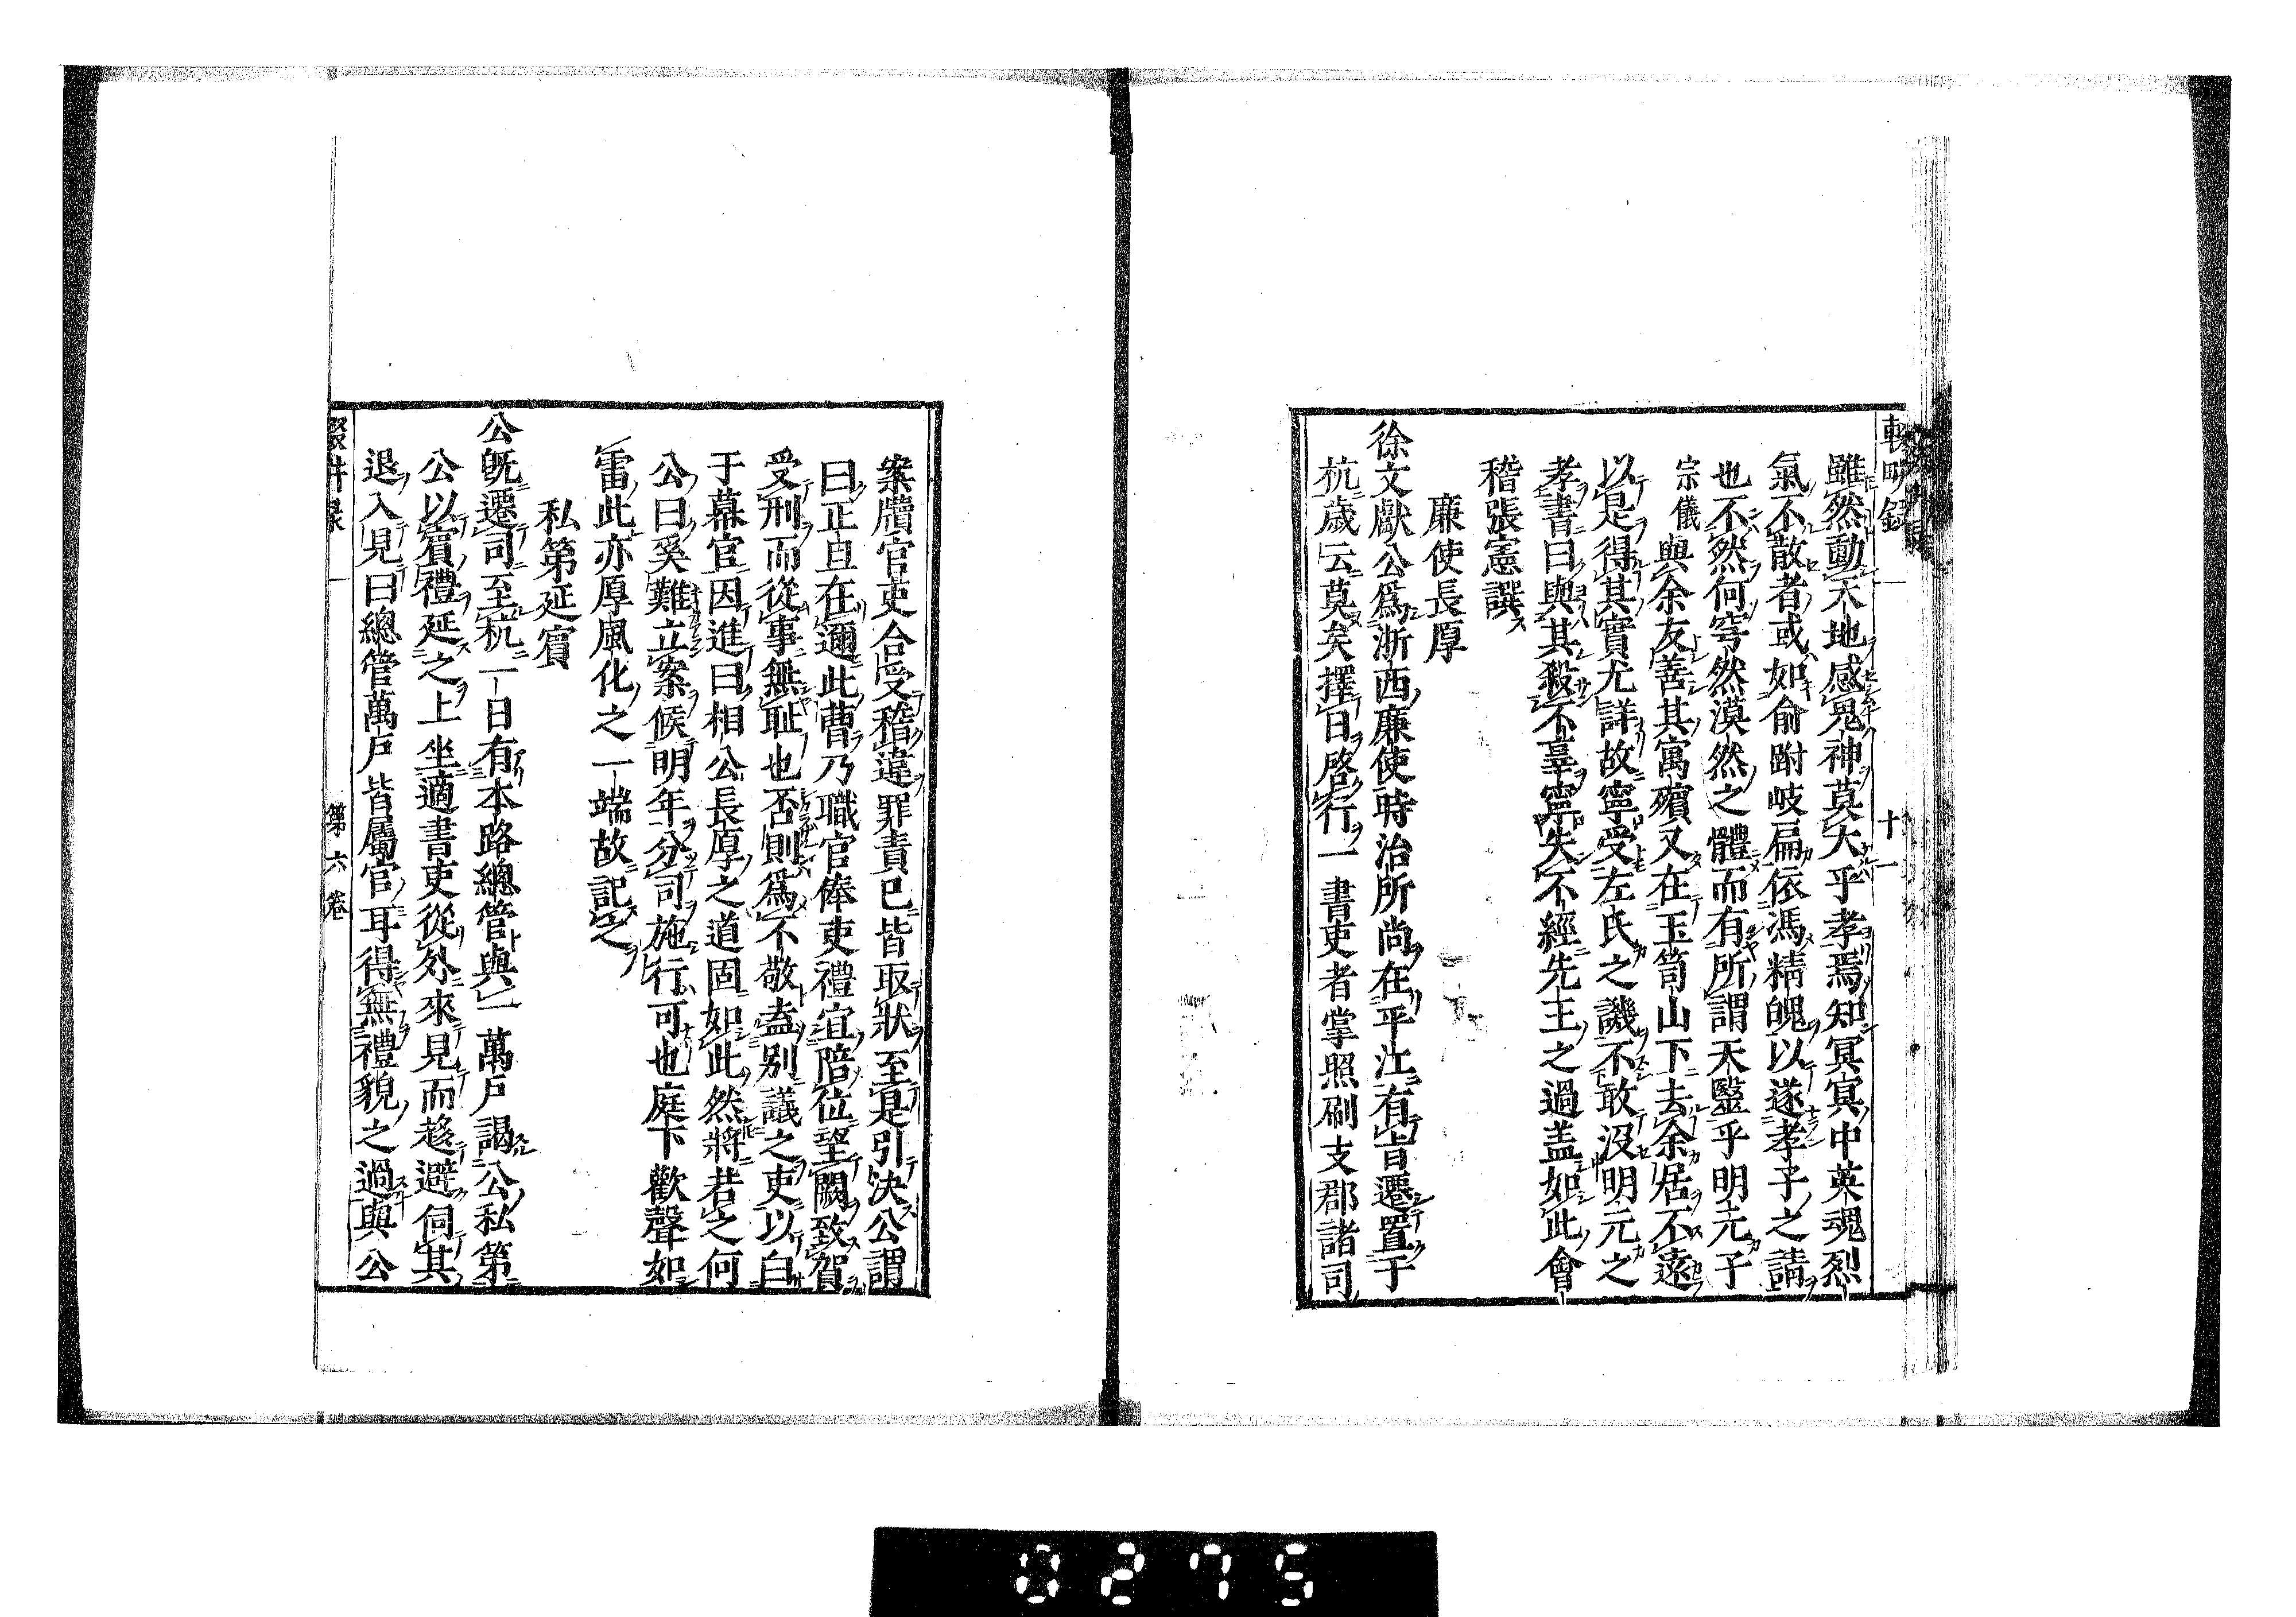 輟耕錄 十一
雖然動天地感鬼神莫大乎孝焉知冥冥中英魂烈
氣不散者或如俞跗岐扁依馮精魄以遂孝子之請
也不然何窅然漠然之體而有所謂天醫乎明元子
宗儀與余友善其寓殯又在玉笥山下去余居不遠
以是得其實尤詳故寧受左氏之譏不敢沒明元之
孝書曰與其殺不辜寧失不經先王之過盖如此會
稽張憲譔
廉使長厚
徐文獻公爲浙西廉使時治所尚在平江有旨遷置于
杭歲云莫矣擇日啓行一書吏者掌照刷支郡諸司
案牘官吏合受稽違罪責已皆取狀至是引決公謂
曰正旦在邇此曹乃職官俸吏禮宜陪位望闕致賀
受刑而從事無耻也否則爲不敬盍别議之吏以白
于幕官因進曰相公長厚之道固如此然將若之何
公曰奚難立案候明年分司施行可也庭下歡聲如
雷此亦厚風化之一端故記之
私第延賓
公旣遷司至杭一日有本路總管與一萬戶謁公私第
公以賓禮延之上坐適書吏從外來見而趍避伺其
退入見曰總管萬戶皆屬官耳得無禮貌之過與公
輟耕录 第六卷
0275